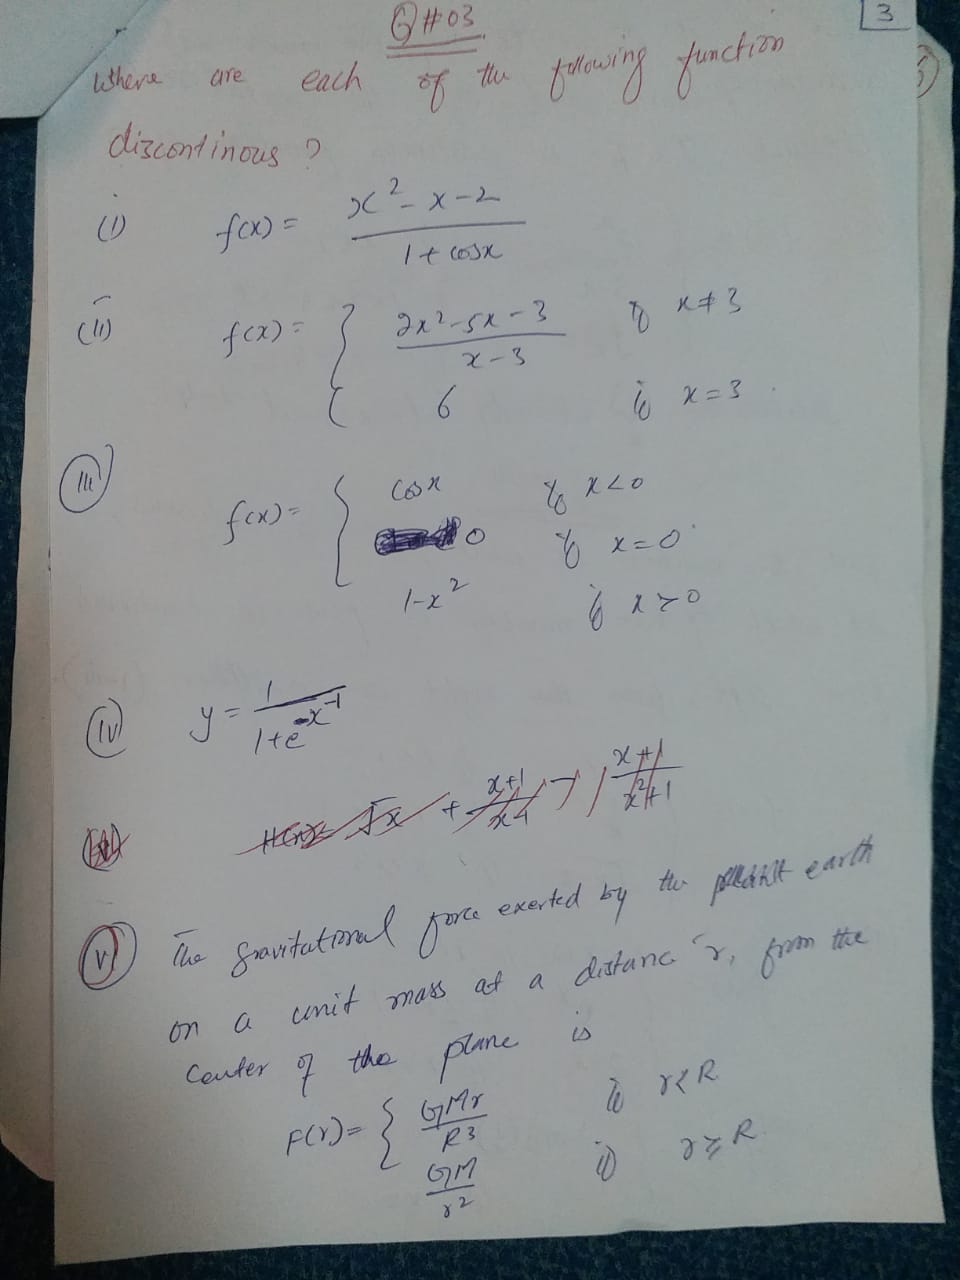 3
Q#03
Where are each of the following function
discontinous ?
(i) f(x) = x² - x - 2 / 1 + cosx
(ii) f(x) = { 2x² - 5x - 3 / x - 3 if x ≠ 3
6 if x = 3
(iii) f(x) = { cosx if x < 0
0 if x = 0
1 - x² if x > 0
(iv) y = 1 / 1 + e^x^-1
H(x) = √x + x+1 /
x+1 / x²+1
(v) The gravitational force exerted by the earth
on a unit mass at a distance r, from the
center of the plane is
F(r) = { GMr / R3 if r < R
GM / r2 if r ≥ R